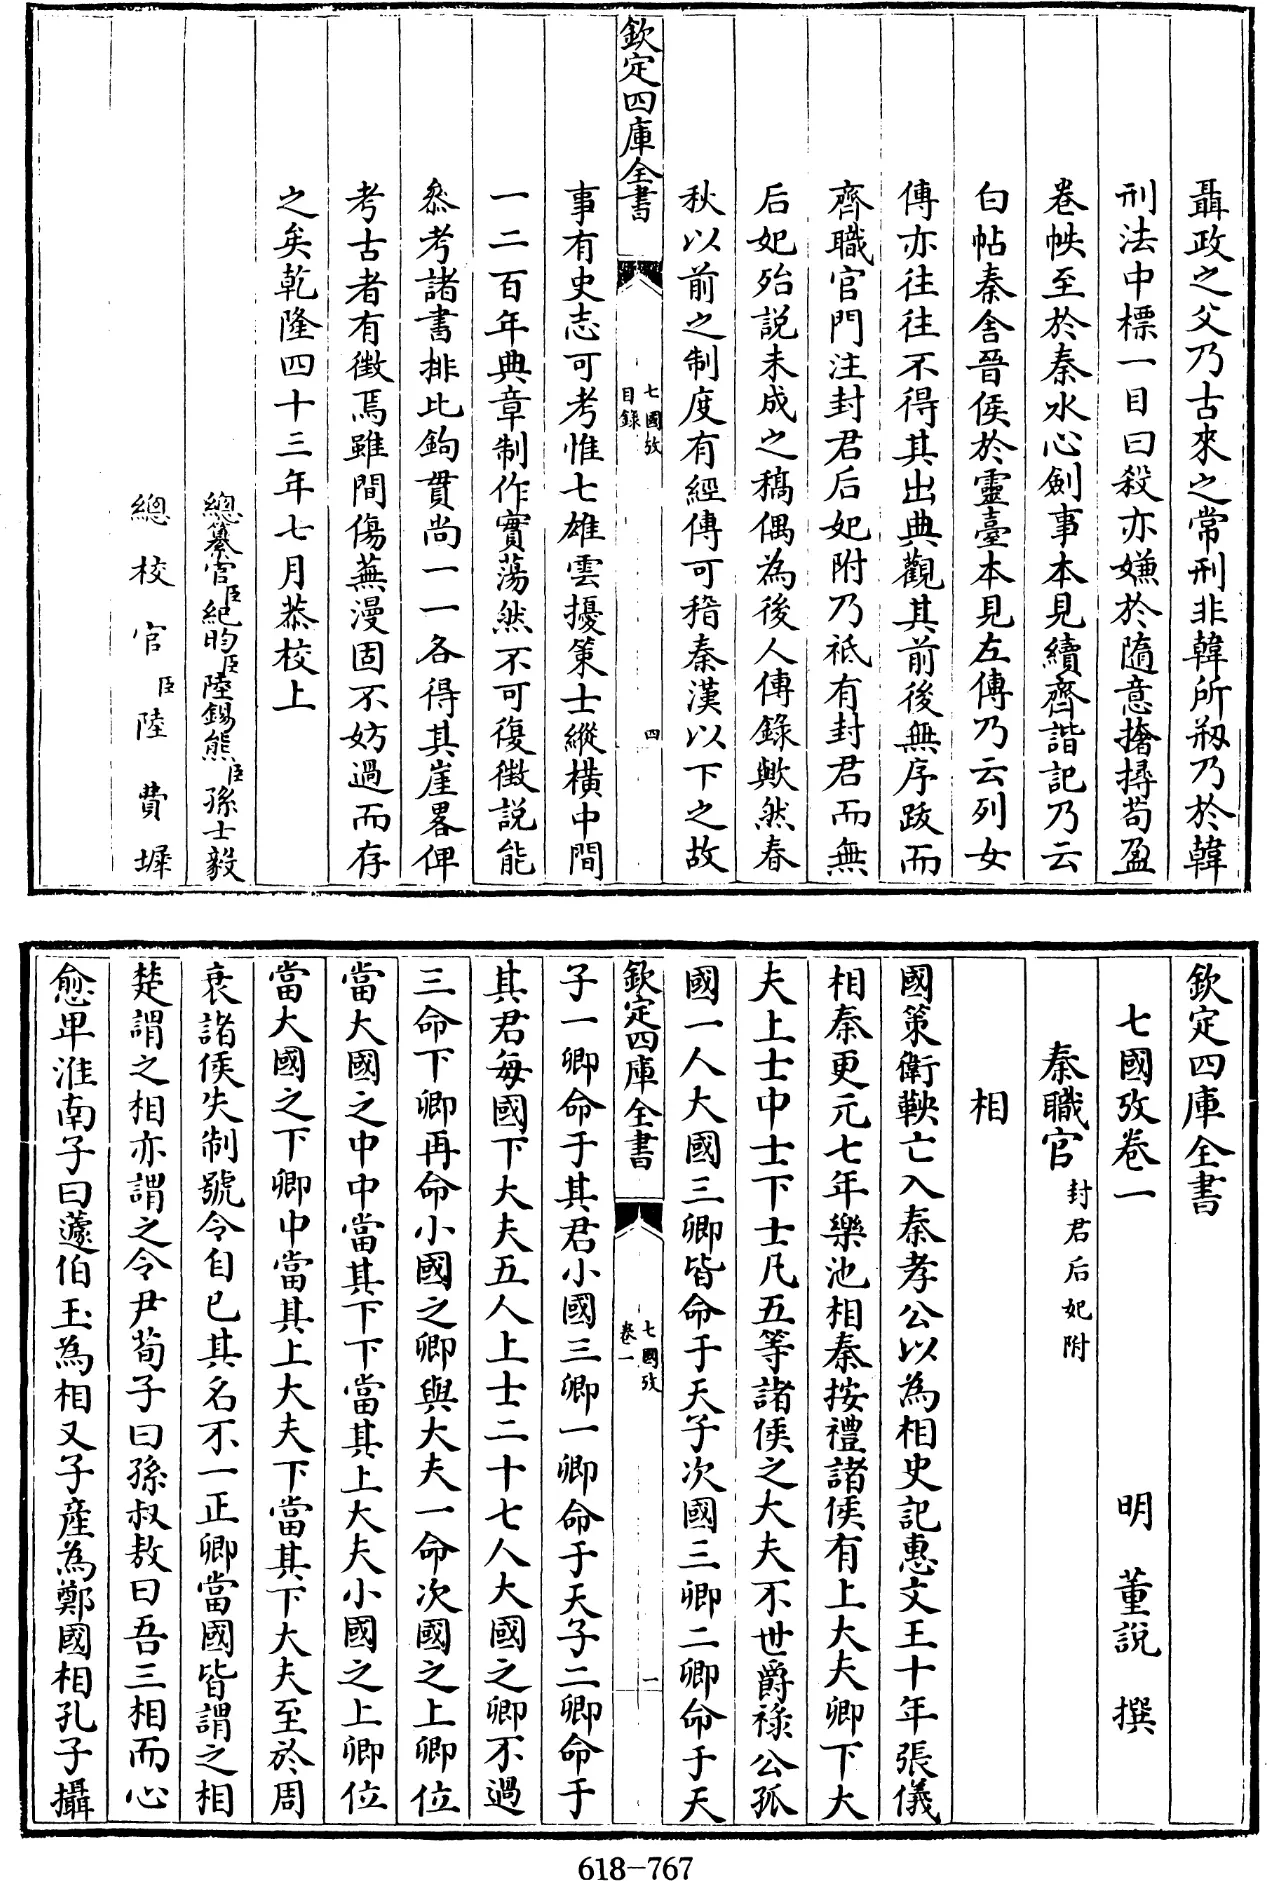 聶政之父乃古來之常刑非韓所剏乃於韓
刑法中標一目曰殺亦嫌於隨意撦撏茍盈
卷帙至於秦水心劍事本見續齊諧記乃云
白帖秦舍晉侯於靈臺本見左傳乃云列女
傳亦往往不得其出典觀其前後無序跋而
齊職官門注封君后妃附乃祗有封君而無
后妃殆說未成之稿偶為後人傳錄歟然春
秋以前之制度有經傳可稽秦漢以下之故
欽定四庫全書
七國攷
目錄
四
事有史志可考惟七雄雲擾策士縱橫中間
一二百年典章制作實蕩然不可復徵說能
叅考諸書排比鉤貫尚一一各得其崖畧俾
考古者有徵焉雖間傷蕪漫固不妨過而存
之矣乾隆四十三年七月恭校上
總纂官臣紀昀臣陸錫熊臣孫士毅
總校官臣陸費墀
欽定四庫全書
七國攷卷一
明 董說 撰
秦職官封君后妃附
相
國策衛鞅亡入秦孝公以為相史記惠文王十年張儀
相秦更元七年樂池相秦按禮諸侯有上大夫卿下大
夫上士中士下士凡五等諸侯之大夫不世爵祿公孤
國一人大國三卿皆命于天子次國三卿二卿命于天
欽定四庫全書
七國攷
卷一
一
子一卿命于其君小國三卿一卿命于天子二卿命于
其君每國下大夫五人上士二十七人大國之卿不過
三命下卿再命小國之卿與大夫一命次國之上卿位
當大國之中中當其下下當其上大夫小國之上卿位
當大國之下卿中當其上大夫下當其下大夫至於周
衰諸侯失制號令自已其名不一正卿當國皆謂之相
楚謂之相亦謂之令尹荀子曰孫叔敖曰吾三相而心
愈卑淮南子曰蘧伯玉為相又子產為鄭國相孔子攝
618-767